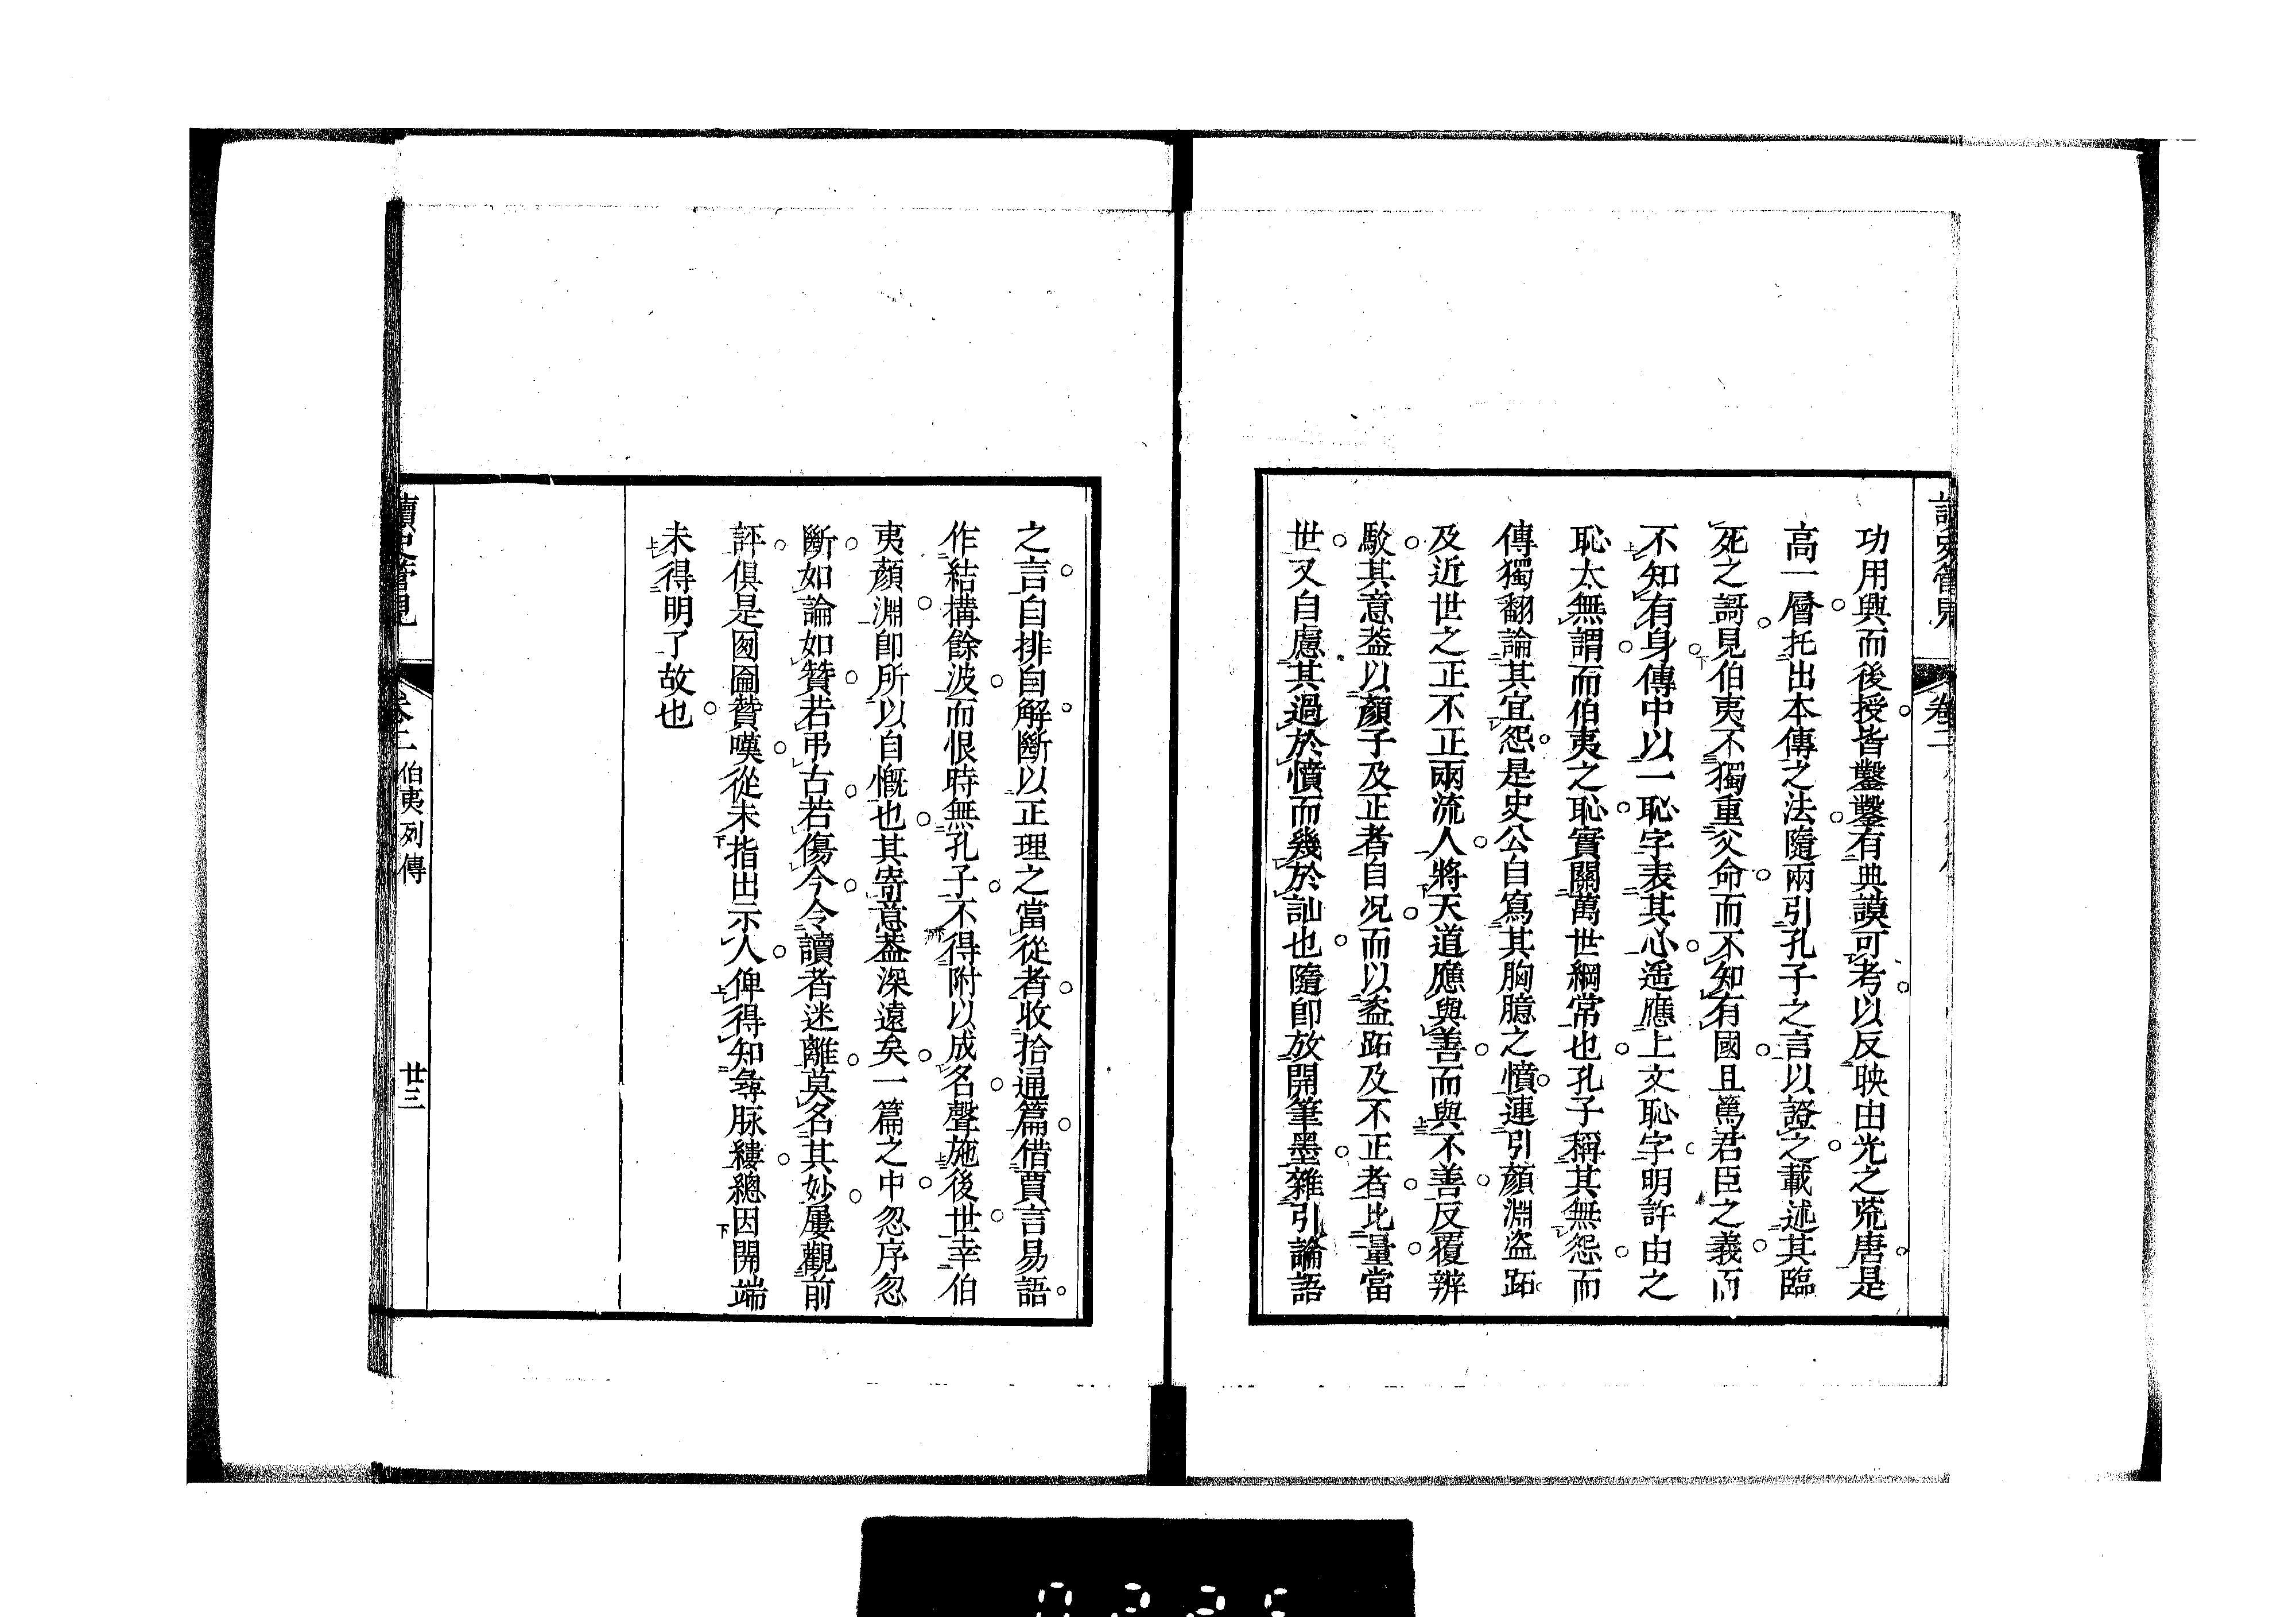 功用與而後授皆鑿鑿有典謨可考以反映由光之荒唐是
高一層托出本傳之法隨兩引孔子之言以證之載述其臨
死之謌見伯夷不獨重父命而不知有國且篤君臣之義而
不知有身傳中以一恥字表其心遥應上文恥字明許由之
恥太無謂而伯夷之恥實關萬世綱常也孔子稱其無怨而
傳獨翻論其宜怨是史公自寫其胸臆之憤連引顏淵盗跖
及近世之正不正兩流人將天道應與善而與不善反覆辨
駁其意葢以顏子及正者自况而以盗跖及不正者比量當
世又自慮其過於憤而幾於訕也隨即放開筆墨雜引論語
之言自排自解斷以正理之當從者收拾通篇借賈言易語
作結構餘波而恨時無孔子不得附以成名聲施後世幸伯
夷顏淵即所以自慨也其寄意葢深遠矣一篇之中忽序忽
斷如論如贊若弔古若傷今令讀者迷離莫名其妙屢觀前
評俱是囫圇贊嘆從未指出示人俾得知尋脉縷總因開端
未得明了故也
讀史管見
卷二
伯夷列傳
廿三